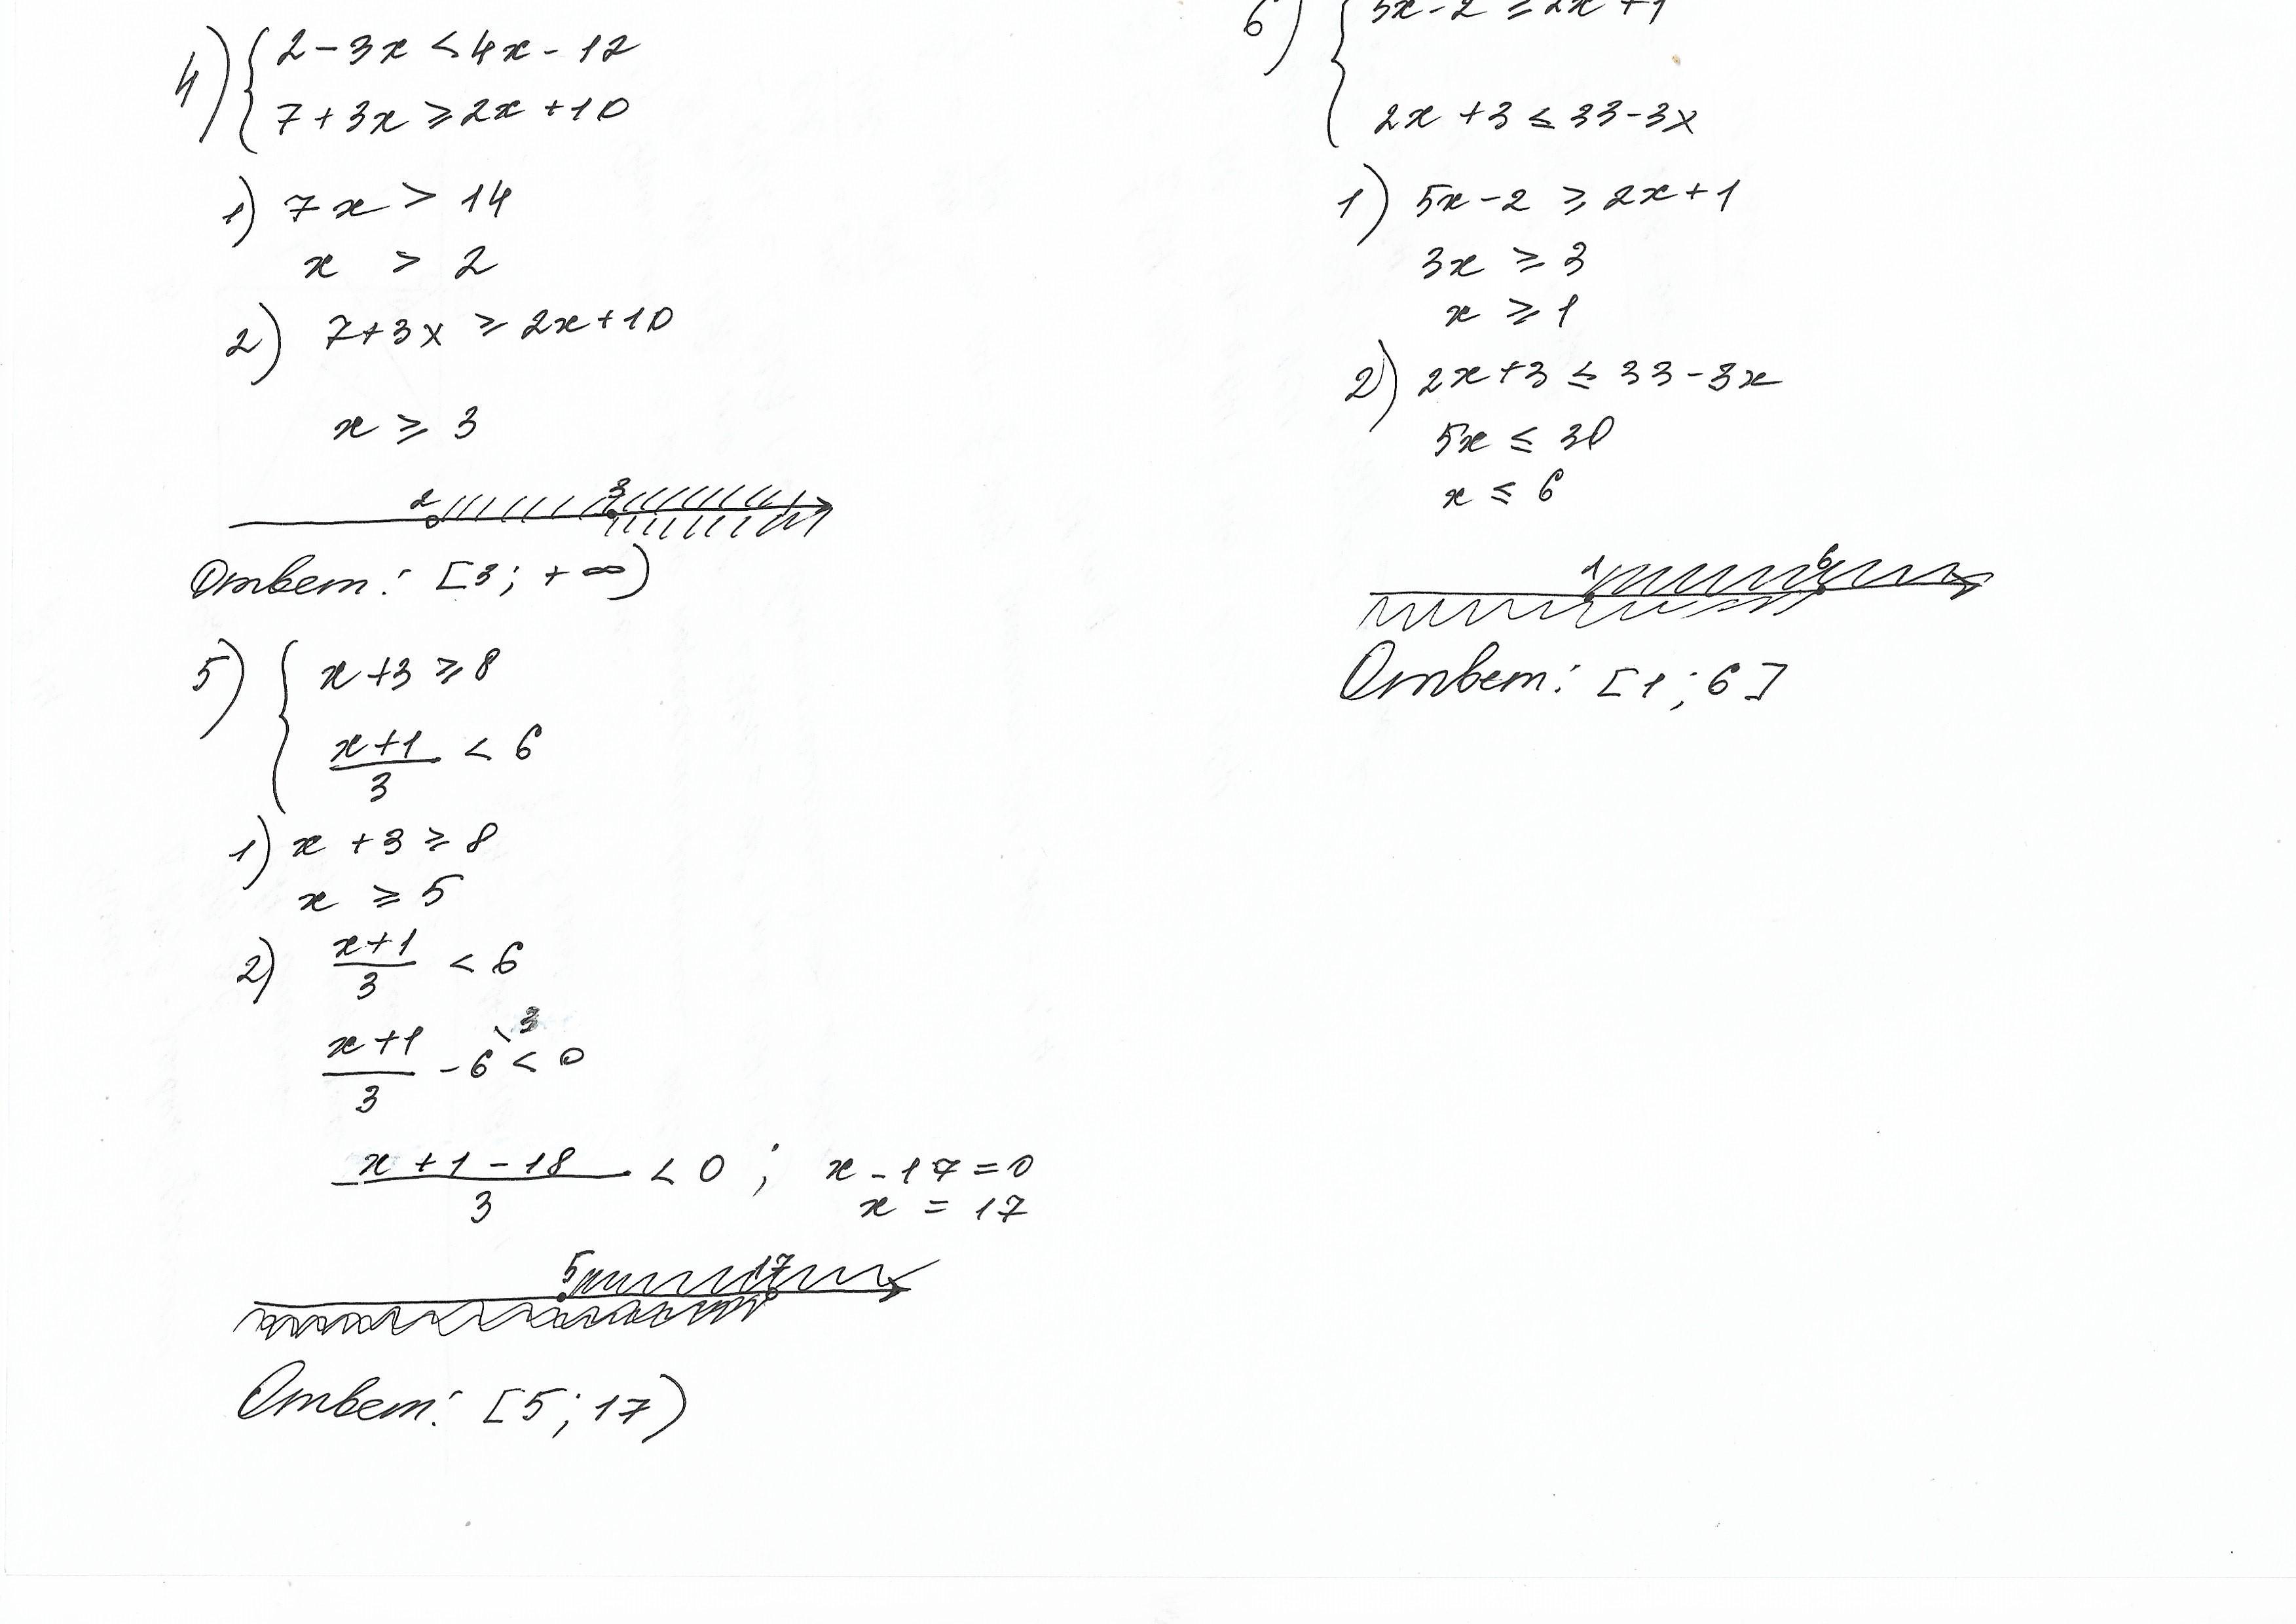 4) { 2 - 3x < 4x - 12
7 + 3x ≥ 2x + 10
1) 7x > 14
x > 2
2) 7 + 3x ≥ 2x + 10
x ≥ 3
2 3
Ответ: [3; +∞)
5) { x + 3 ≥ 8
(x+1)/3 < 6
1) x + 3 ≥ 8
x ≥ 5
2) (x+1)/3 < 6
(x+1)/3 - 6 \3 < 0
(x + 1 - 18)/3 < 0 ; x - 17 = 0
x = 17
5 17
Ответ: [5; 17)
6) { 5x - 2 ≥ 2x + 1
2x + 3 ≤ 33 - 3x
1) 5x - 2 ≥ 2x + 1
3x ≥ 3
x ≥ 1
2) 2x + 3 ≤ 33 - 3x
5x ≤ 30
x ≤ 6
1 6
Ответ: [1; 6]